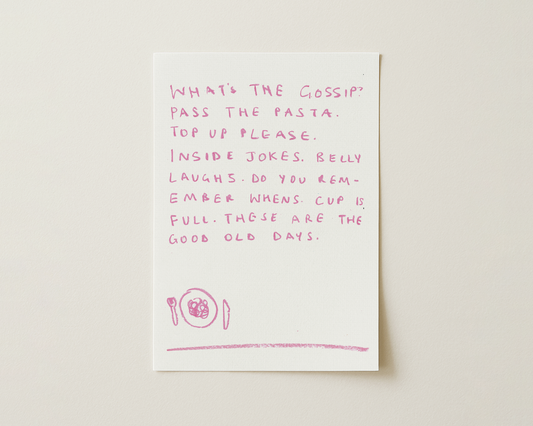 WHAT'S THE GOSSIP?
PASS THE PASTA.
TOP UP PLEASE.
INSIDE JOKES. BELLY
LAUGHS. DO YOU REM-
EMBER WHENS. CUP IS
FULL. THESE ARE THE
GOOD OLD DAYS.